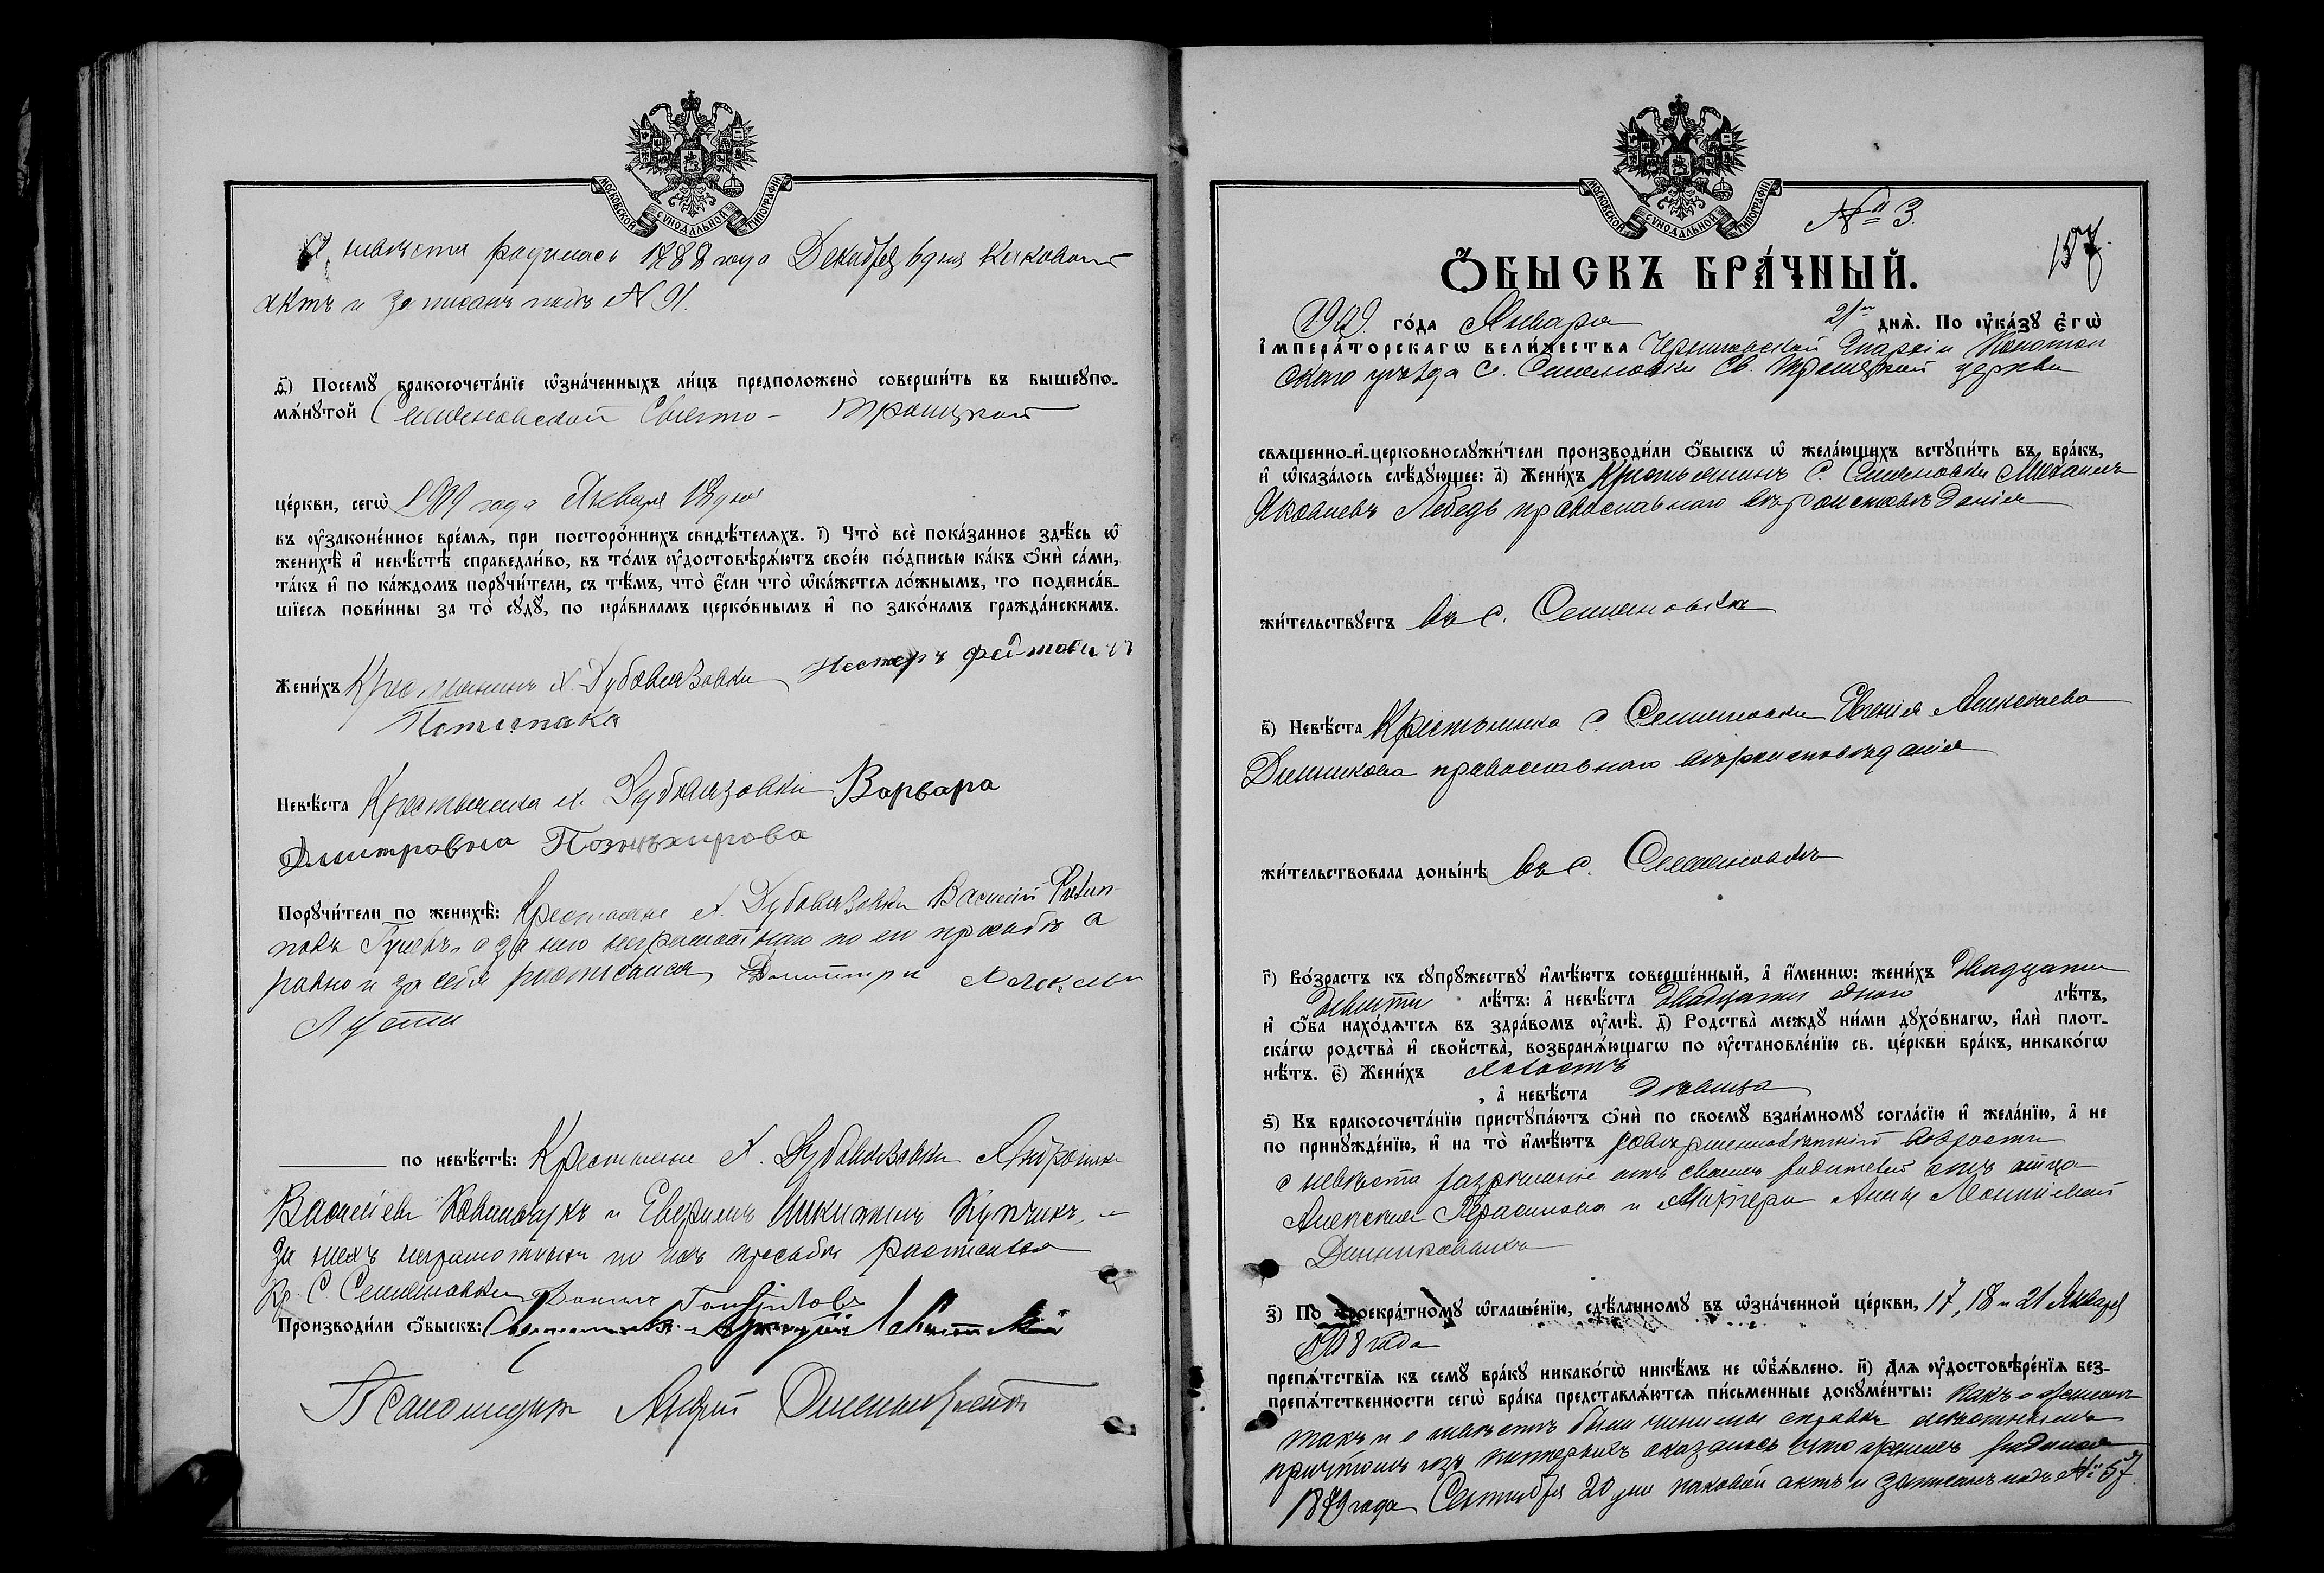 МОСКОВСКОЙ СѴНОДАЛЬНОЙ ТИПОГРАФІИ
А невѣста родилась 1888 года Декабря 6 дня каковой
актъ и записанъ подъ № 91.
д҃і) Посемꙋ̀ бракосочета́нїе ѡ҆зна́ченныхъ ли́цъ предположено̀ соверши́ть въ вышеꙋпо-
мѧ́нꙋтой Семеновской Свято- Троицкой
це́ркви, сегѡ̀ 1909 года Января 18 дня
въ ᲂу҆законе́нное вре́мѧ, при посторо́ннихъ свидѣ́телѧхъ. г҃і) Что̀ всѐ пока́занное здѣ́сь ѡ҆
женихѣ̀ и҆ невѣ́стѣ справедли́во, въ то́мъ ᲂу҆достовѣрѧ́ютъ свое́ю по́дписью ка́къ ѻ҆нѝ са́ми,
та́къ и҆ по ка́ждомъ порꙋчи́тели, съ тѣ́мъ, что̀ є҆́сли что̀ ѡ҆ка́жетсѧ ло́жнымъ, то подписа́в-
шїесѧ пови́нны за то̀ сꙋдꙋ̀, по пра́виламъ церко́внымъ и҆ по зако́намъ гражда́нскимъ.
Жени́хъ Крестьянинъ х. Дубовязовки Нестеръ
Невѣ́ста Крестьянка х. Дубовязовки Варвара
Дмитровна
Порꙋчи́тели по женихѣ̀: Крестьяне х. Дубовязовки Василій
а за него неграмотнаго по его просьбѣ а
равно и за себя росписался Дмитри Алексѣи
по невѣ́стѣ: Крестьяне х. Дубовязовки
Васильевъ Ковальчукъ и Никитинъ Купчикъ, а
за нихъ неграмотныхъ по ихъ просьбѣ росписался
Кр. С. Семеновки
Производи́ли ѻ҆́быскъ: Священникъ
Псаломщикъ Андрей
МОСКОВСКОЙ СѴНОДАЛЬНОЙ ТИПОГРАФІИ
№ 3.
157.
Ѻ҆́БЫСКЪ БРА́ЧНЫЙ.
1909 го́да Января 21го днѧ̀. По ᲂу҆ка́зꙋ є҆гѡ̀
і҆мпера́торскагѡ вели́чества Черниговской Епархіи Конотоп
скаго уѣзда С. Семеновки Св. Троицкой церкви
свѧщенно-и҆-церковнослꙋжи́тели производи́ли ѻ҆́быскъ ѡ҆ жела́ющихъ встꙋпи́ть въ бра́къ,
и҆ ѡ҆каза́лось слѣ́дꙋющее: а҃) Жени́хъ Крестьянинъ С. Семеновки Михаилъ
Яковлевъ Лебедь православнаго вѣроисповѣданія
жи́тельствꙋетъ въ с. Семеновкѣ
в҃) Невѣ́ста Крестьянка С. Семеновки Евгенія Алексѣева
Динникова православнаго вѣроисповѣданія
жи́тельствовала донынѣ̀ въ с. Семеновкѣ
г҃) Во́зрастъ къ сꙋпрꙋ́жествꙋ и҆мѣ́ютъ соверше́нный, а҆ и҆́меннѡ: жени́хъ двадцати
девяти лѣ́тъ: а҆ невѣ́ста двадцати одного лѣ́тъ,
и҆ ѻ҆́ба нахо́дѧтсѧ въ здра́вомъ ᲂу҆мѣ̀. д҃) Родства̀ междꙋ̀ ни́ми дꙋхо́внагѡ, и҆лѝ плот-
ска́гѡ родства̀ и҆ свойства̀, возбранѧ́ющагѡ по ᲂу҆становле́нїю св. це́ркви бра́къ, никако́гѡ
нѣ́тъ. є҃) Жени́хъ холостъ
, а҆ невѣ́ста дѣвица
ѕ҃) Къ бракосочета́нїю пристꙋпа́ютъ ѻ҆нѝ по своемꙋ̀ взаи́мномꙋ согла́сїю и҆ жела́нїю, а҆ не
по принꙋжде́нїю, и҆ на то̀ и҆мѣ́ютъ совершеннолѣтній возрастъ
а невѣста разрѣшеніе отъ своихъ родителей отъ отца
Алексѣя Герасимова и матери Анны
Динниковыхъ
з҃) По троекра́тномꙋ ѡ҆глаше́нїю, сдѣ́ланномꙋ въ ѡ҆зна́ченной це́ркви, 17, 18 и 21 Января
1908 года
препѧ́тствїѧ къ семꙋ̀ бра́кꙋ никако́гѡ никѣ́мъ не ѡ҆бъѧ́влено. и҃) Длѧ ᲂу҆достовѣре́нїѧ без-
препѧ́тственности сегѡ̀ бра́ка представлѧ́ютсѧ пи́сьменные докꙋме́нты: какъ о женихѣ
такъ и о невѣстѣ были чинимы справки мѣстнымъ
причтомъ изъ которыхъ оказалось что женихъ родился
1879 года Сентября 20 дня каковой актъ и записанъ подъ № 57.